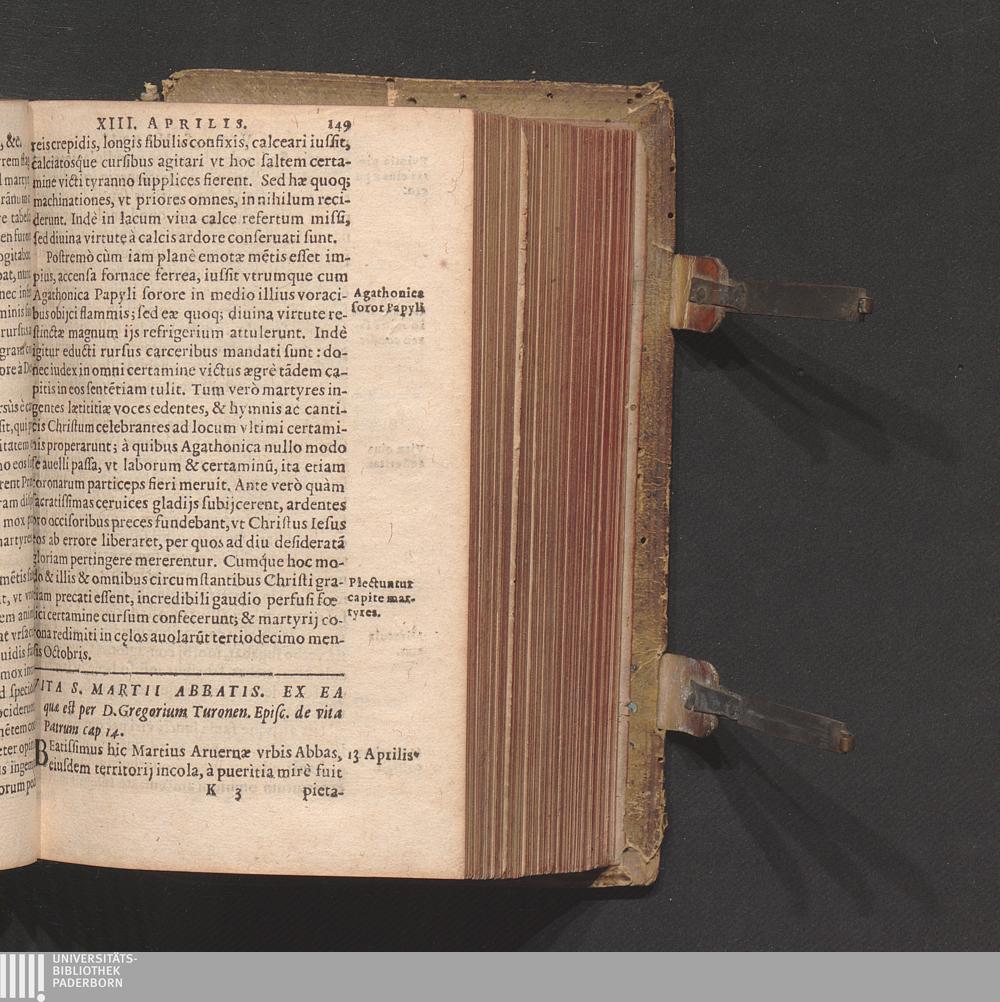 XIII. APRILIS. 149
reis crepidis, longis fibulis confixis, calceari iuſſit,
calciatosq́ue curſibus agitari vt hoc ſaltem certa-
mine victi tyranno ſupplices fierent. Sed hæ quoq;
machinationes, vt priores omnes, in nihilum reci-
derunt. Indè in lacum viua calce refertum miſſi,
ſed diuina virtute à calcis ardore conſeruati ſunt.
Poſtremò cùm iam planè emotæ mētis eſſet im-
pius, accenſa fornace ferrea, iuſſit vtrumque cum
Agathonica Papyli ſorore in medio illius voraci-
bus obijci flammis; ſed eæ quoq; diuina virtute re-
ſtinctæ magnum ijs refrigerium attulerunt. Indè
igitur educti rurſus carceribus mandati ſunt: do-
nec iudex in omni certamine victus ægrè tādem ca-
pitis in eos ſentētiam tulit. Tum verò martyres in-
gentes lætitiæ voces edentes, & hymnis ac canti-
cis Chriſtum celebrantes ad locum vltimi certami-
nis properarunt; à quibus Agathonica nullo modo
ſe auelli paſſa, vt laborum & certaminū, ita etiam
coronarum particeps fieri meruit. Ante verò quàm
ſacratiſſimas ceruices gladijs ſubijcerent, ardentes
pro occiſoribus preces fundebant, vt Chriſtus Ieſus
eos ab errore liberaret, per quos ad diu deſideratā
gloriam pertingere mererentur. Cumq́ue hoc mo-
do & illis & omnibus circumſtantibus Chriſti gra-
tiam precati eſſent, incredibili gaudio perfuſi fœ
lici certamine curſum confecerunt; & martyrij co-
rona redimiti in cęlos auolarūt tertiodecimo men-
ſis Octobris.
Agathonica
ſoror Papyli
Plectuntur
capite mar-
tyres.
VITA S. MARTII ABBATIS. EX EA
quæ eſt per D. Gregorium Turonen. Epiſc. de vita
Patrum cap 14.
BEatiſſimus hic Martius Aruernæ vrbis Abbas,
eiuſdem territorij incola, à pueritia mirè fuit
13 Aprilis
K 3 pieta-
UNIVERSITÄTS-
BIBLIOTHEK
PADERBORN